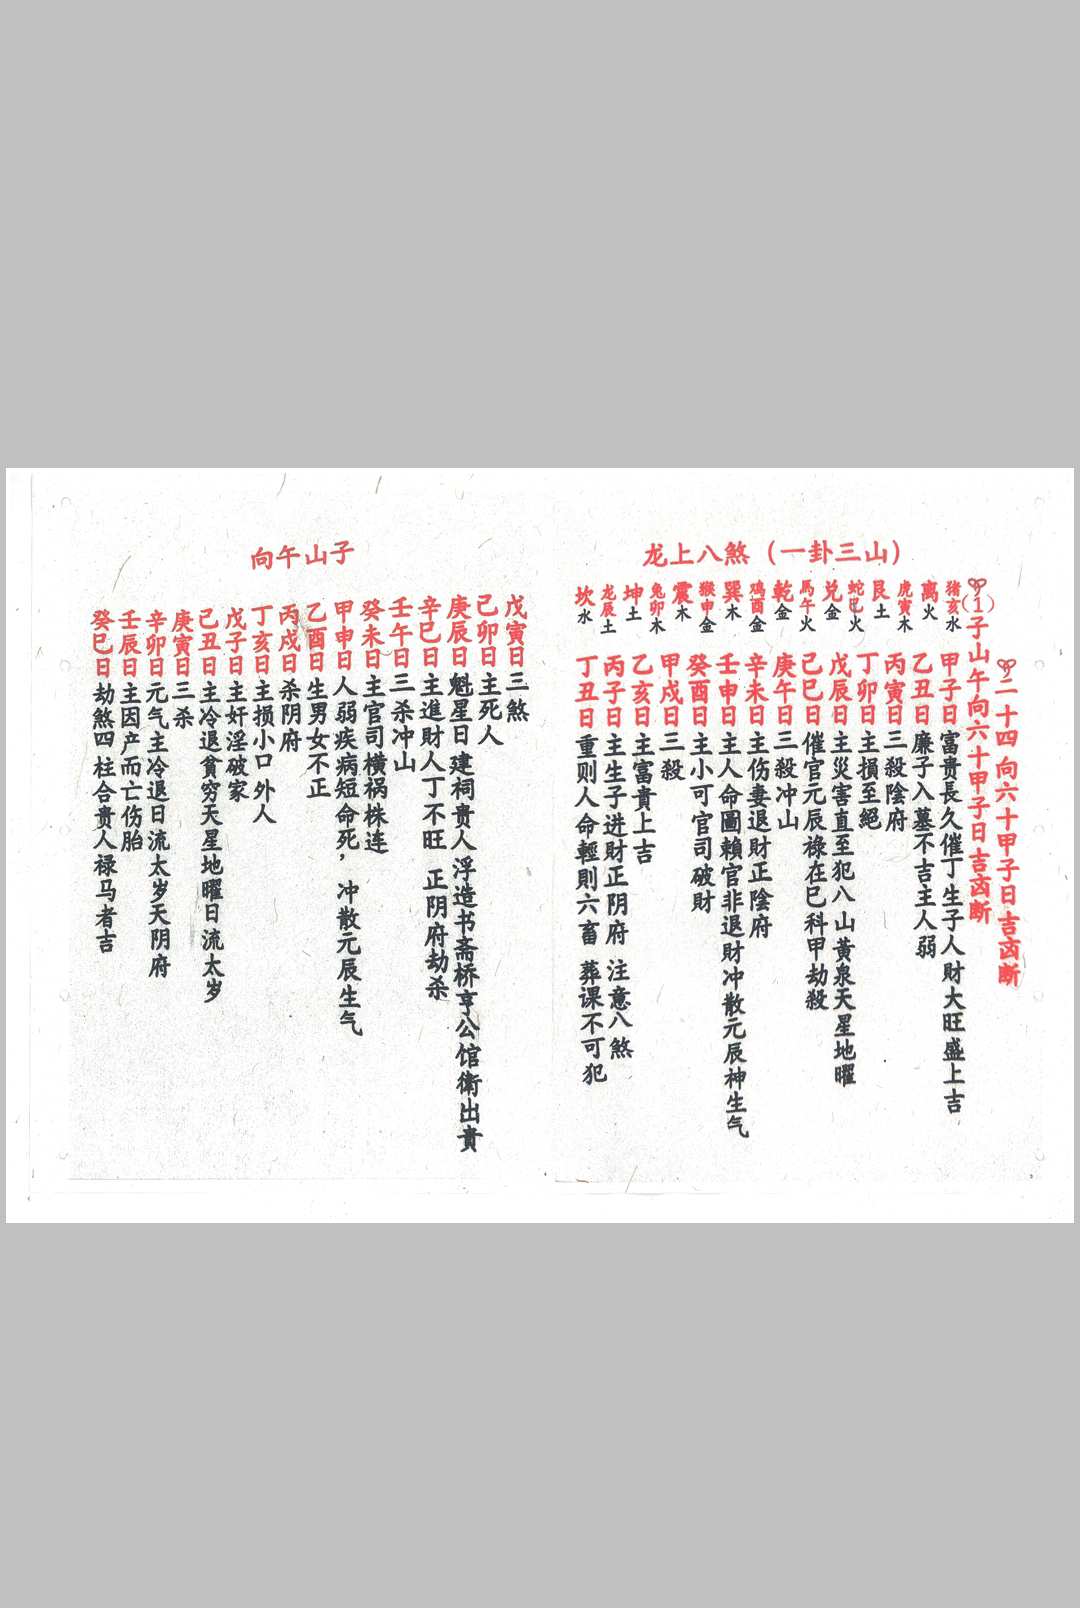 二十四向六十甲子日吉凶断
(1)子山午向六十甲子日吉凶断
龙上八煞（一卦三山）
猪亥水
离火
虎寅木
艮土
蛇巳火
兑金
馬午火
乾金
鸡酉金
巽木
猴申金
震木
兔卯木
坤土
龙辰土
坎水
甲子日富贵長久催丁生子人財大旺盛上吉
乙丑日廉子入墓不吉主人弱
丙寅日三殺陰府
丁卯日主損至絕
戊辰日主災害直至犯八山黄泉天星地曜
己巳日催官元辰祿在巳科甲劫殺
庚午日三殺冲山
辛未日主伤妻退財正陰府
壬申日主人命圖賴官非退財冲散元辰神生气
癸酉日主小可官司破財
甲戌日三殺
乙亥日主富貴上吉
丙子日主生子进財正阴府 注意八煞
丁丑日重则人命輕則六畜 葬课不可犯
子山午向
戊寅日三煞
己卯日主死人
庚辰日魁星日建祠贵人浮造书斋桥亨公馆衛出貴
辛巳日主進財人丁不旺 正阴府劫杀
壬午日三杀冲山
癸未日主官司横祸株连
甲申日人弱疾病短命死，冲散元辰生气
乙酉日生男女不正
丙戌日杀阴府
丁亥日主损小口外人
戊子日主奸淫破家
己丑日主冷退貧穷天星地曜日流太岁
庚寅日三杀
辛卯日元气主冷退日流太岁天阴府
壬辰日主因产而亡伤胎
癸巳日劫煞四柱合贵人禄马者吉